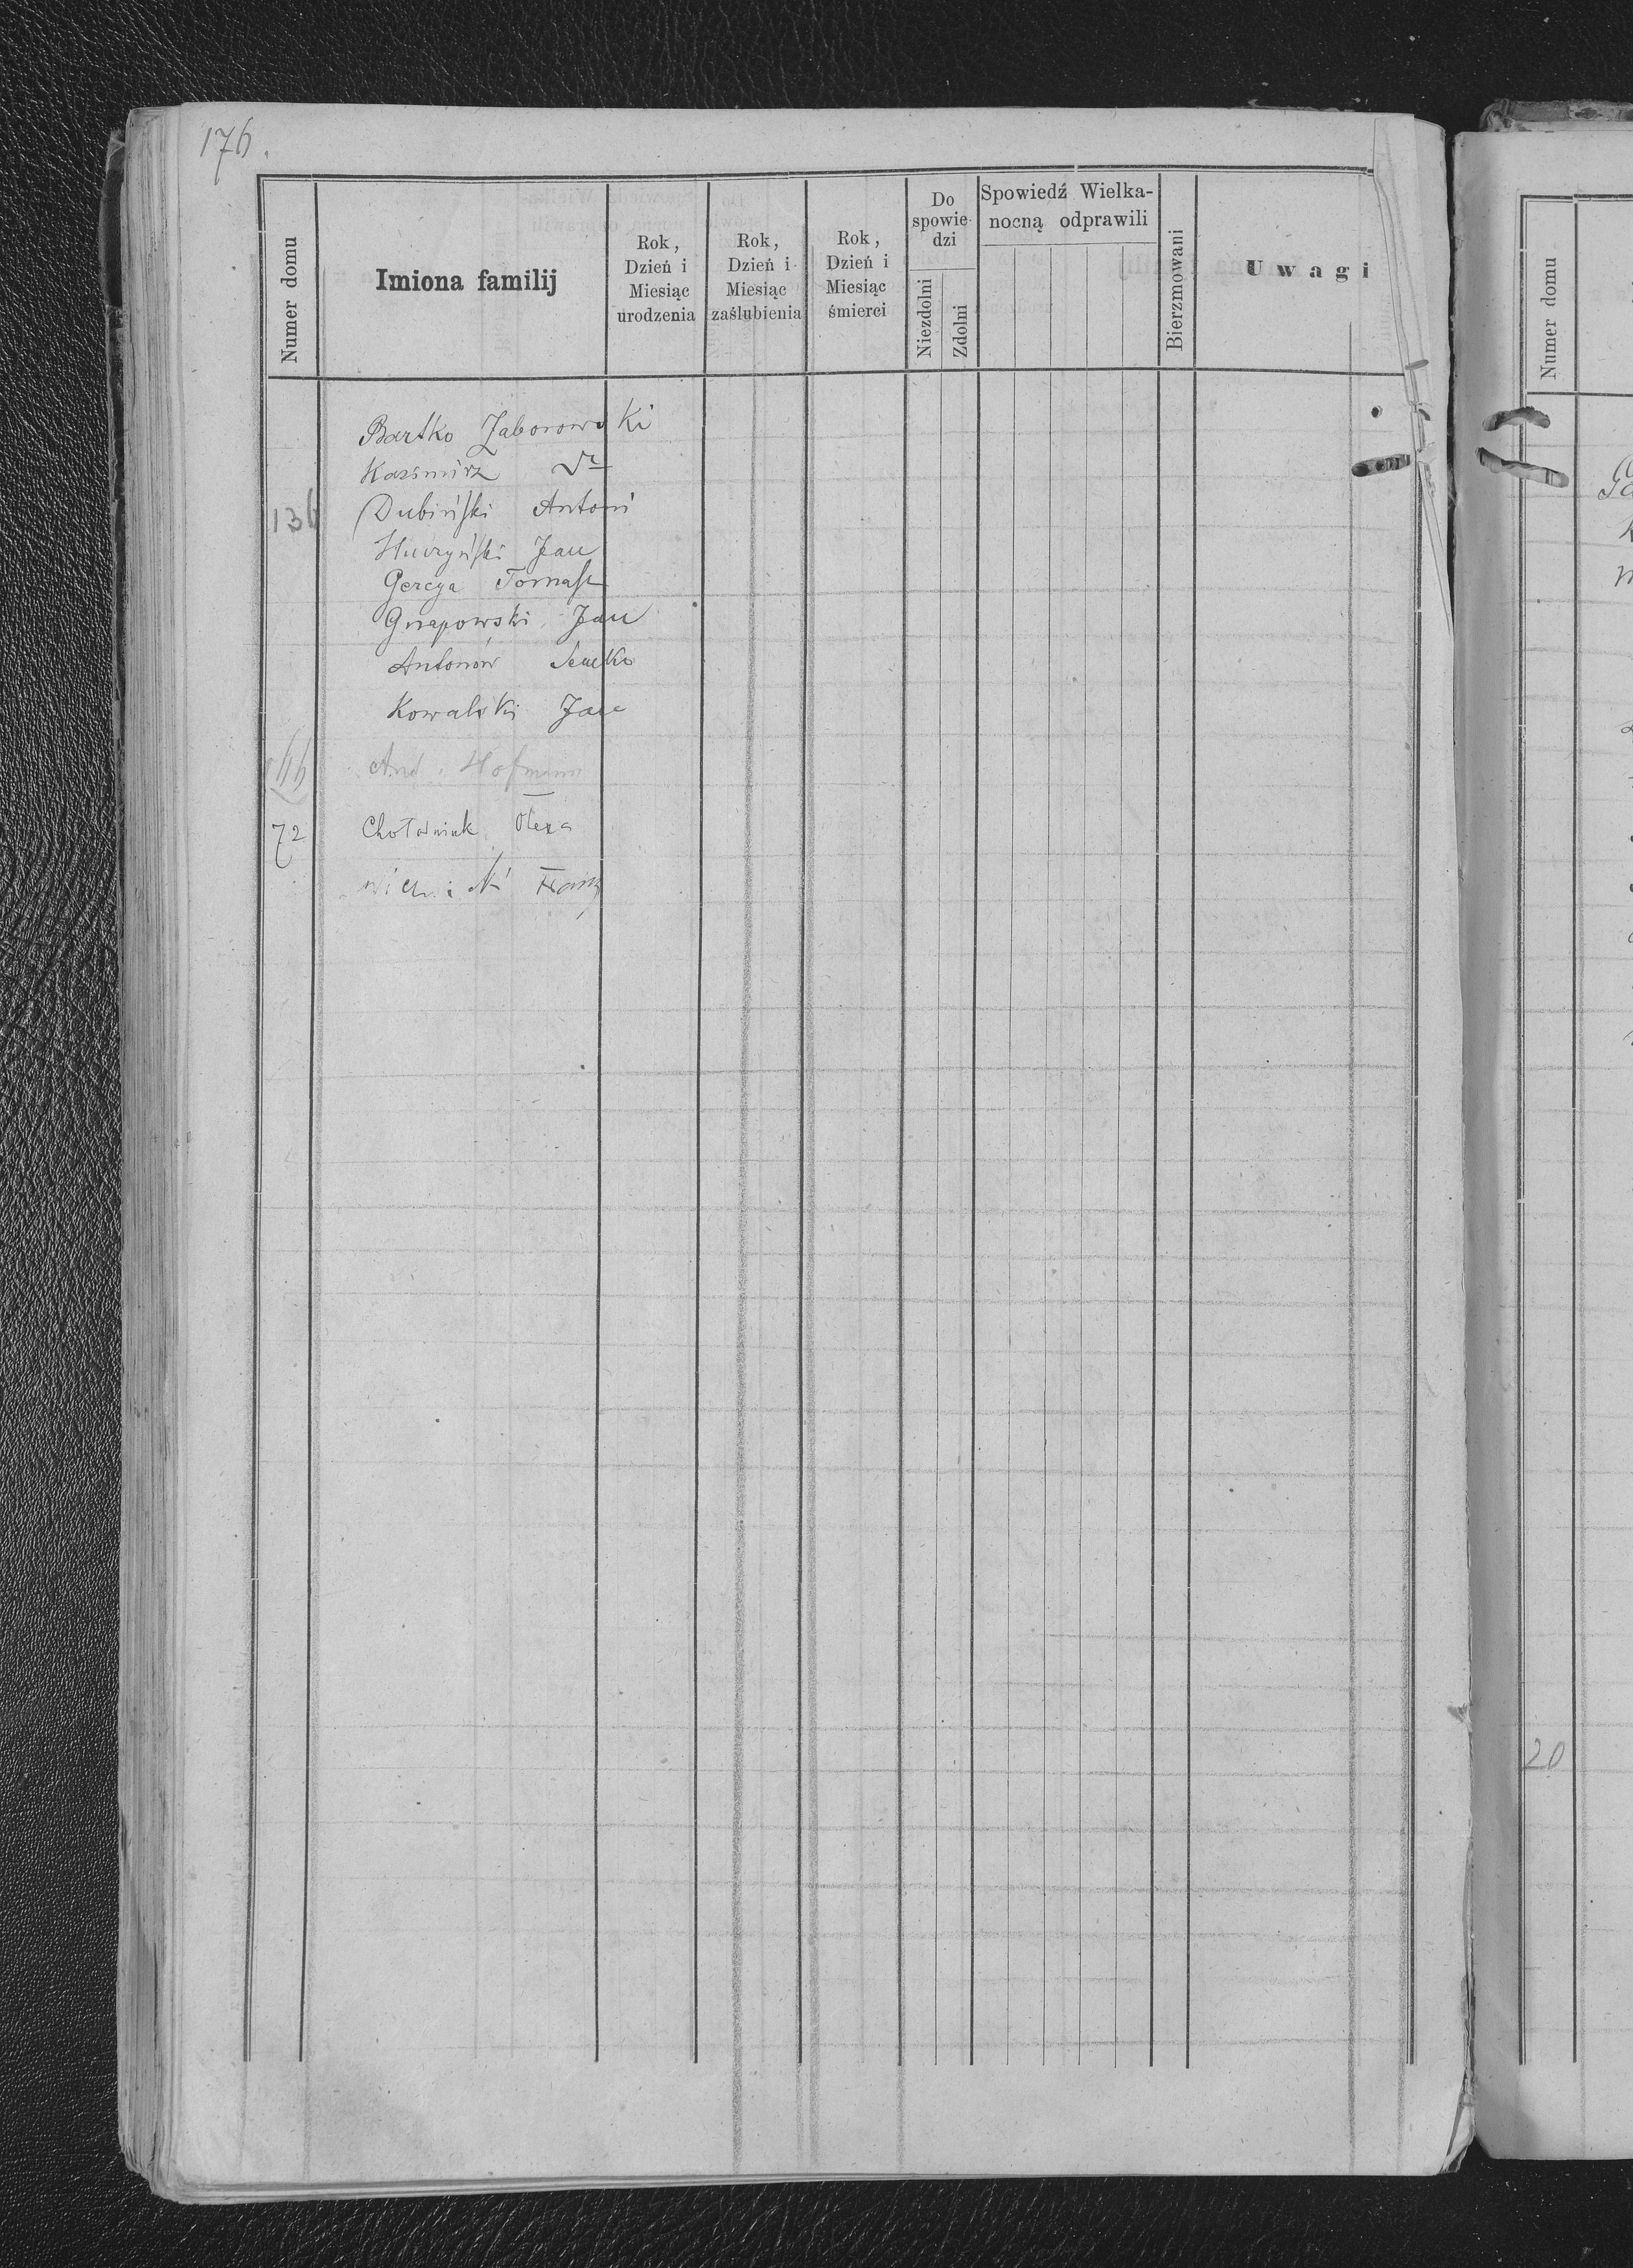 176.
Numer domu
Imiona familij
Rok, Dzień i Miesiąc urodzenia
Rok, Dzień i Miesiąc zaślubienia
Rok, Dzień i Miesiąc śmierci
Do spowie-dzi
Niezdolni
Zdolni
Spowiedź Wielka-
nocną odprawili
Bierzmowani
Uwagi
Bartko Zaborowski
Kazimirz
136 Dubiński Antoni
Jan
Gerega Tomasz
Gnapowski Jan
Antonów Senko
Kowalski Jan
And. Hofmann
72 Choławniuk Olexa
Numer domu
20